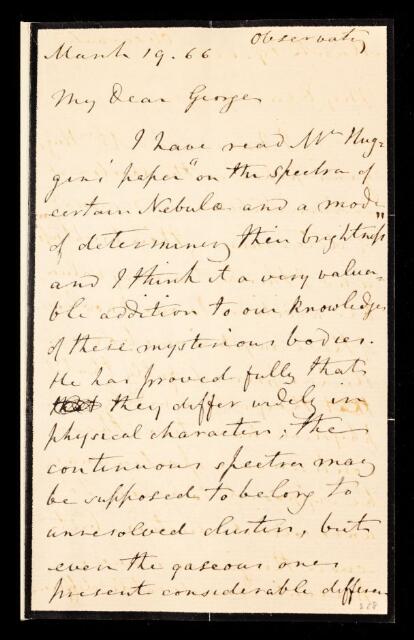 Observatory
March 19. 66
My Dear George
I have read Mr Hug-
gins' paper "on the Spectra of
certain Nebulæ and a mode
of determining their brightness"
and I think it a very valua-
ble addition to our knowledge
of these mysterious bodies.
He has proved fully that
they differ widely in
physical character; the
continuous spectra may
be supposed to belong to
unresolved clusters, but
even the gaseous ones
present considerable differen